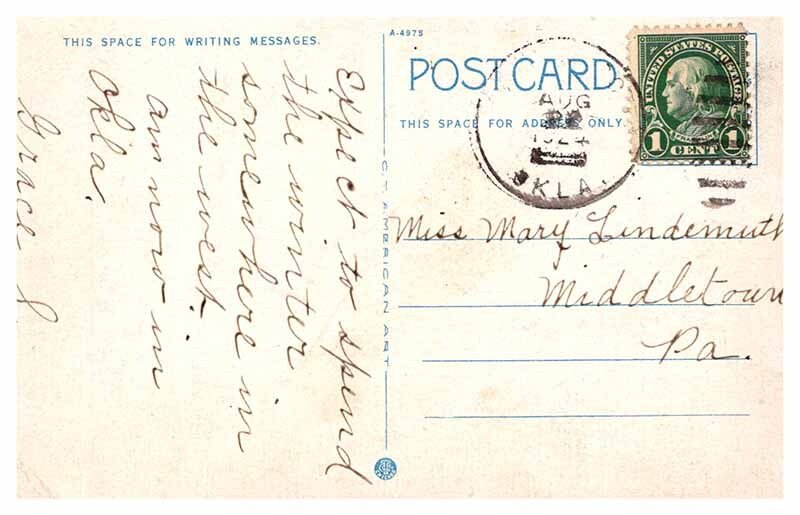 THIS SPACE FOR WRITING MESSAGES.
Expect to spend
the winter
somewhere in
the west.
am now in
Okla.
Grace
A-4975
POST CARD
THIS SPACE FOR ADDRESS ONLY.
AUG
1924
OKLA.
UNITED STATES POSTAGE
FRANKLIN
1 CENT 1
Miss Mary Lindemuth
Middletown
Pa.
C.T. AMERICAN ART